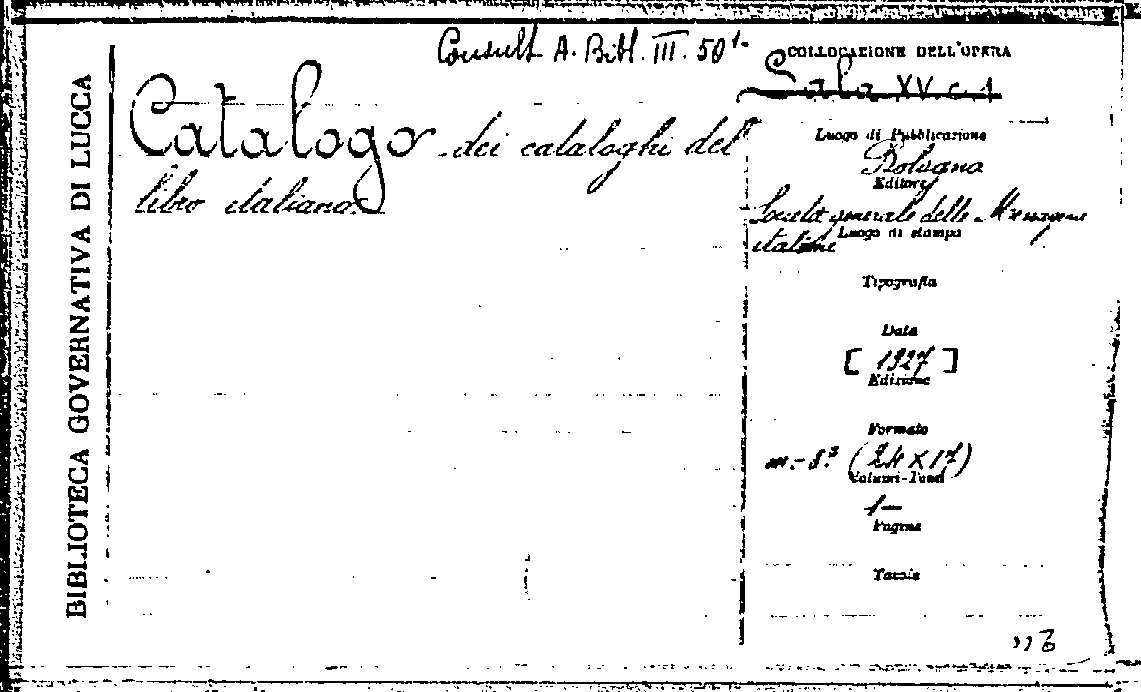 BIBLIOTECA GOVERNATIVA DI LUCCA
Consult. A. Bibl. III. 50¹⁻
COLLOCAZIONE DELL'OPERA
Sala XV. c. 1
Catalogo dei cataloghi del
libro italiano.
Luogo di Pubblicazione
Bologna
Editore
Società generale delle Messagerie
italiane
Luogo di stampa
Tipografia
Data
[1927]
Edizione
Formato
in-8º (24 x 17)
Volumi-Tomi
1 —
Pagine
Tavole